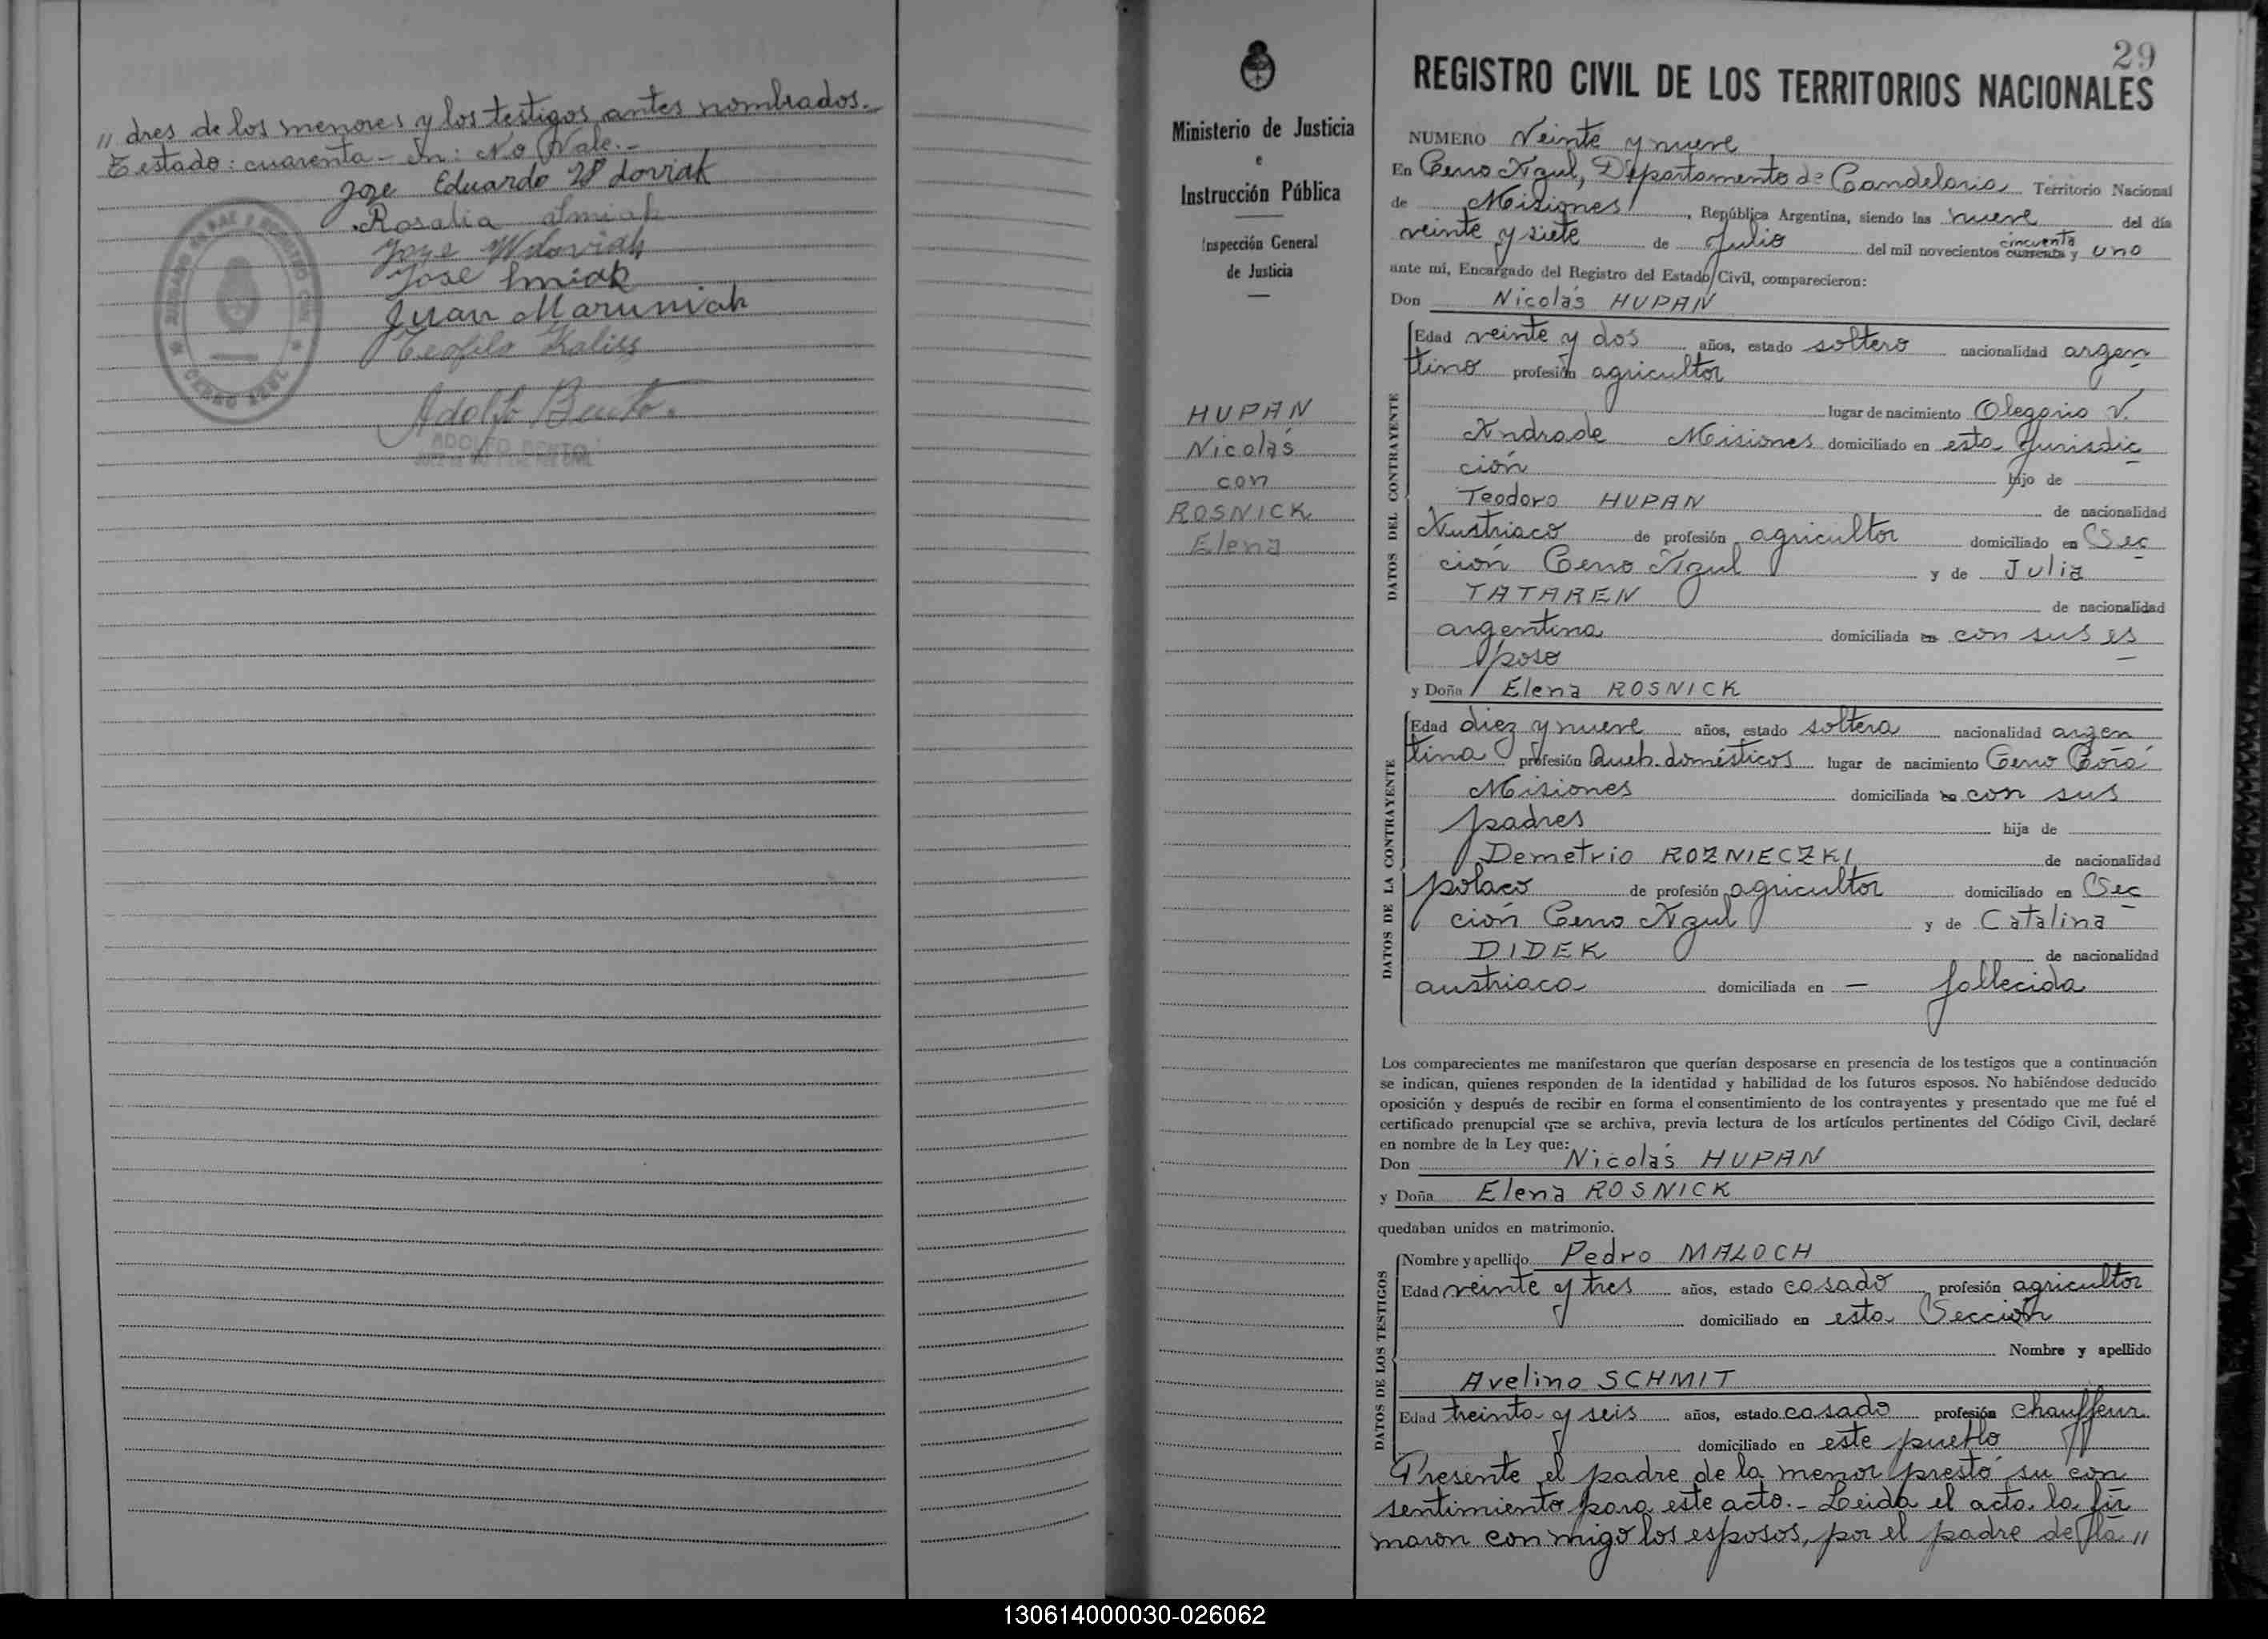 " dres de los menores y los testigos antes nombrados.-
Testado: cuarenta - En: No Vale.-
Jose Eduardo Wdoviak
Rosalia Smiak
Jose Wdoviak
Jose Smiak
Juan Maruniak
Teofilo Kaliss
Adolfo Bento.
ADOLFO BENTO
CERRO AZUL
Ministerio de Justicia
e
Instrucción Pública
Inspección General
de Justicia
HUPAN
Nicolás
con
ROSNICK
Elena
29
REGISTRO CIVIL DE LOS TERRITORIOS NACIONALES
NUMERO Veinte y nueve
En Cerro Azul, Departamento de Candelaria Territorio Nacional
de Misiones, República Argentina, siendo las nueve del día
veinte y siete de Julio del mil novecientos cuarenta cincuenta y uno
ante mí, Encargado del Registro del Estado Civil, comparecieron:
Don Nicolás HUPAN
DATOS DEL CONTRAYENTE
Edad veinte y dos años, estado soltero nacionalidad argen
tino profesión agricultor
lugar de nacimiento Olegario V.
Andrade Misiones domiciliado en esta Jurisdic
ción hijo de
Teodoro HUPAN de nacionalidad
Austriaco de profesión agricultor domiciliado en Sec
ción Cerro Azul y de Julia
TATAREN de nacionalidad
argentina domiciliada en con sus es
poso
y Doña Elena ROSNICK
DATOS DE LA CONTRAYENTE
Edad diez y nueve años, estado soltera nacionalidad argen
tina profesión Queh. domésticos lugar de nacimiento Cerro Corá
Misiones domiciliada en con sus
padres hija de
Demetrio ROZNIECZKI de nacionalidad
polaco de profesión agricultor domiciliado en Sec
ción Cerro Azul y de Catalina
DIDEK de nacionalidad
austriaca domiciliada en — fallecida
Los comparecientes me manifestaron que querían desposarse en presencia de los testigos que a continuación
se indican, quienes responden de la identidad y habilidad de los futuros esposos. No habiéndose deducido
oposición y después de recibir en forma el consentimiento de los contrayentes y presentado que me fué el
certificado prenupcial que se archiva, previa lectura de los artículos pertinentes del Código Civil, declaré
en nombre de la Ley que:
Don Nicolás HUPAN
y Doña Elena ROSNICK
quedaban unidos en matrimonio.
DATOS DE LOS TESTIGOS
Nombre y apellido Pedro MALOCH
Edad veinte y tres años, estado casado profesión agricultor
domiciliado en esta Sección
Nombre y apellido
Avelino SCHMIT
Edad treinta y seis años, estado casado profesión chauffeur
domiciliado en este pueblo
Presente el padre de la menor prestó su con
sentimiento para este acto.- Leida el acta la fir
maron con migo los esposos, por el padre de la "
130614000030-026062